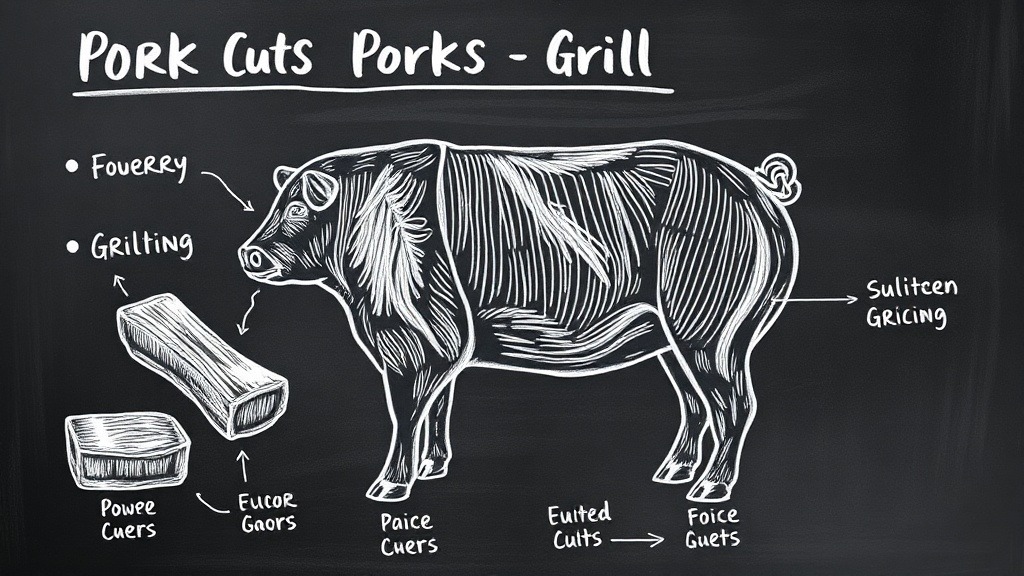 Pork Cuts Porks - Grill
• Fouerry
• Grilting
Sulitcen
Gricing
Powee
Cuers
Eucor
Gaors
Paice
Cuers
Euited
Cults
Foice
Guets